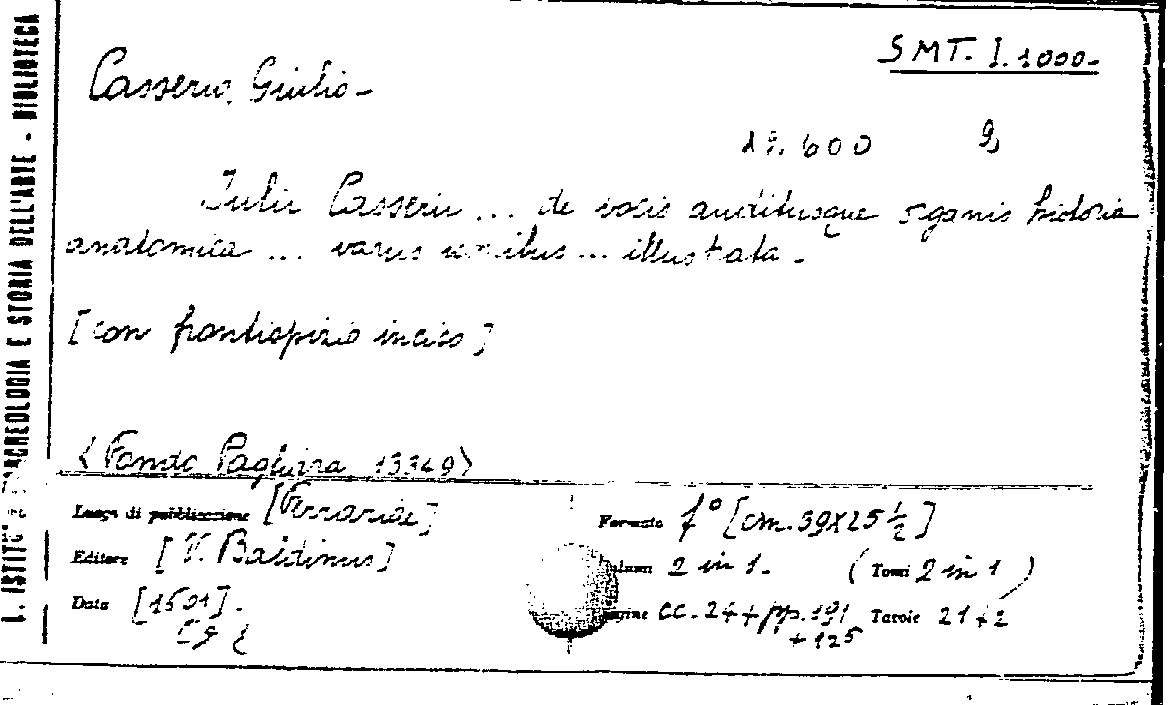 SMT. I. 1000.
Casserio, Giulio -
19.600
Iulii Casserii ... de vocis auditusque organis historia
anatomica ... variis iconibus ... illustrata -
[con frontispizio inciso]
<Fondo Pagliara 13349>
Luogo di pubblicazione [Ferrariae] Formato f° [cm. 39x25 ½]
Editore [V. Baldinus] 2 in 1. (Tomi 2 in 1)
Data [1601]. cc. 24 + pp. 191 Tavole 21+2
+ 125
ISTITUTO ARCHEOLOGIA E STORIA DELL'ARTE - BIBLIOTECA